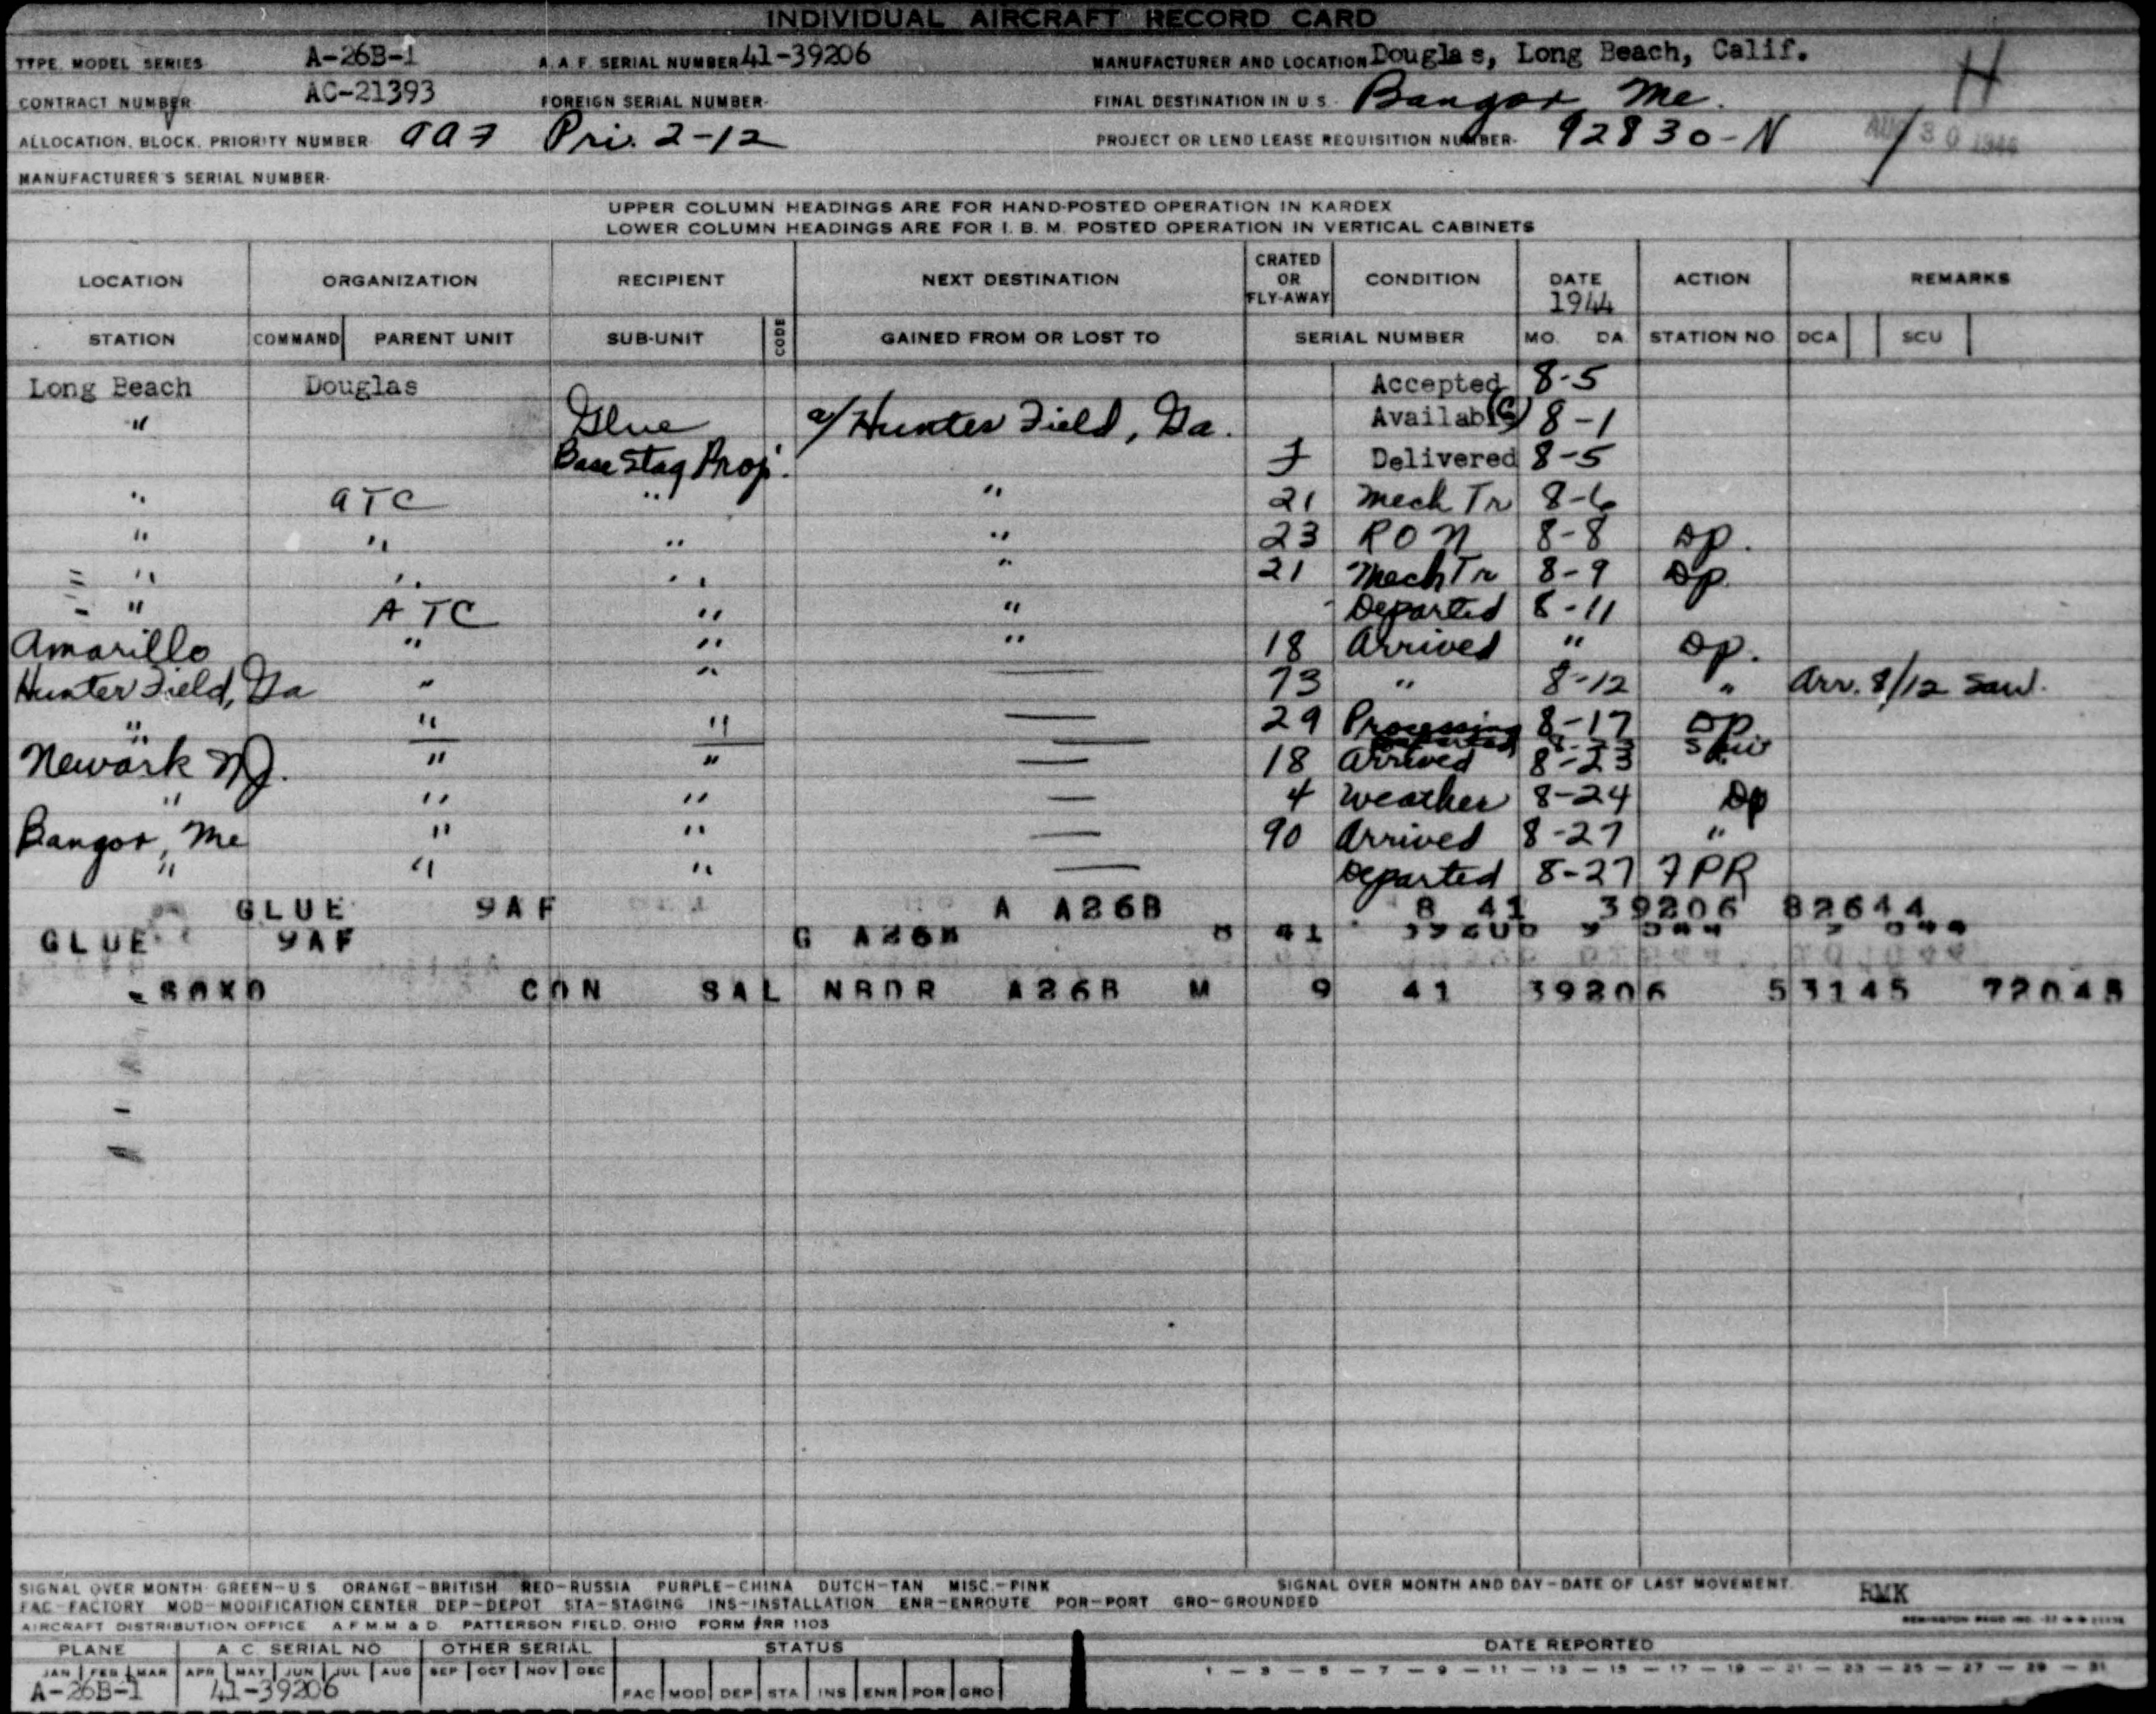 INDIVIDUAL AIRCRAFT RECORD CARD
TYPE, MODEL, SERIES A-26B-1 A.A.F. SERIAL NUMBER 41-39206 MANUFACTURER AND LOCATION Douglas, Long Beach, Calif. H
CONTRACT NUMBER AC-21393 FOREIGN SERIAL NUMBER- FINAL DESTINATION IN U.S. Bangor, Me.
ALLOCATION, BLOCK, PRIORITY NUMBER- Pri. 2-12 PROJECT OR LEND LEASE REQUISITION NUMBER- 92830-N AUG 30 1944
MANUFACTURER'S SERIAL NUMBER-
UPPER COLUMN HEADINGS ARE FOR HAND-POSTED OPERATION IN KARDEX
LOWER COLUMN HEADINGS ARE FOR I. B. M. POSTED OPERATION IN VERTICAL CABINETS
LOCATION ORGANIZATION RECIPIENT NEXT DESTINATION CRATED OR FLY-AWAY CONDITION DATE 1944 ACTION REMARKS
STATION COMMAND PARENT UNIT SUB-UNIT CODE GAINED FROM OR LOST TO SERIAL NUMBER MO. DA. STATION NO. DCA SCU
Long Beach Douglas Accepted 8-5
" Glue a/ Hunter Field, Ga. Availab(C) 8-1
Base Stag Proj. Delivered 8-5
" ATC " " 21 Mech Tr 8-6
" " " " 23 RON 8-8 Dp.
" " " " 21 Mech Tr 8-9 Dp.
" ATC " " Departed 8-11
Amarillo " " " 18 Arrived " Dp.
Hunter Field, Ga " " — 73 " 8-12 " Arr. 8/12 Sav.
" " " — 29 Processing 8-17 Dp
Newark NJ. " " — 18 Arrived 8-23
" " " — 4 Weather 8-24 Dp
Bangor, Me " " — 90 Arrived 8-27 "
" " " — Departed 8-27 7PR
GLUE 9AF A A26B 8 41 39206 82644
GLUE 9AF G A26B 41
CON SAL A26B M 9 41 39206 53145 72045
SIGNAL OVER MONTH- GREEN-U.S. ORANGE-BRITISH RED-RUSSIA PURPLE-CHINA DUTCH-TAN MISC.-PINK SIGNAL OVER MONTH AND DAY-DATE OF LAST MOVEMENT. RMK
FAC-FACTORY MOD-MODIFICATION CENTER DEP-DEPOT STA-STAGING INS-INSTALLATION ENR-ENROUTE POR-PORT GRO-GROUNDED
AIRCRAFT DISTRIBUTION OFFICE A.F.M.M & D PATTERSON FIELD, OHIO FORM #RR 1103
PLANE A C SERIAL NO OTHER SERIAL STATUS DATE REPORTED
JAN FEB MAR APR MAY JUN JUL AUG SEP OCT NOV DEC 1 - 3 - 5 - 7 - 9 - 11 - 13 - 15 - 17 - 19 - 21 - 23 - 25 - 27 - 29 - 31
A-26B-1 41-39206 FAC MOD DEP STA INS ENR POR GRO